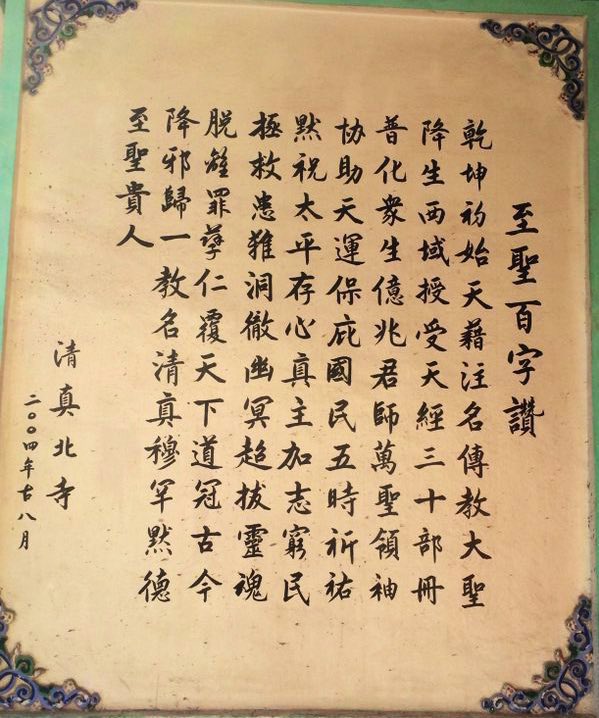 至聖百字讚
乾坤初始天藉注名傳教大聖
降生西域授受天經三十部冊
普化衆生億兆君師萬聖領袖
協助天運保庇國民五時祈祐
默祝太平存心真主加志窮民
拯救患難洞徹幽冥超拔靈魂
脫離罪孽仁覆天下道冠古今
降邪歸一教名清真穆罕默德
至聖貴人
清真北寺
二〇〇四年古八月